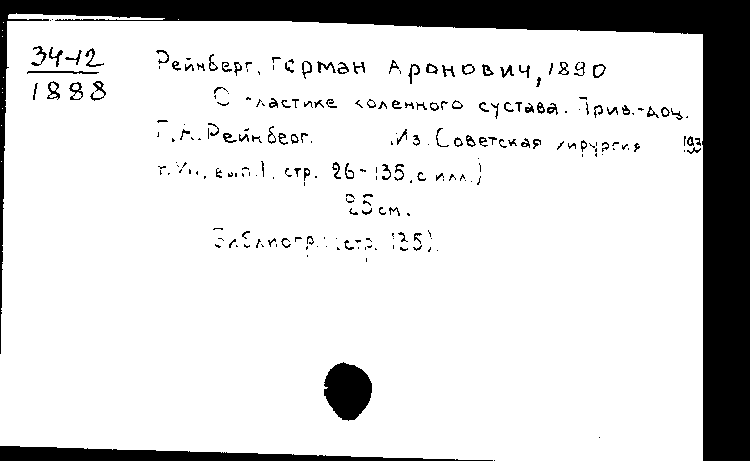 34-12
1888
Рейнберг, Герман Аронович, 1890
О пластике коленного сустава. Прив.-доц.
Г. А. Рейнберг. Из. Советская хирургия 193
т. VII, вып. 1, стр. 26-135, с илл.)
25 см.
Библиогр.: (стр. 135).